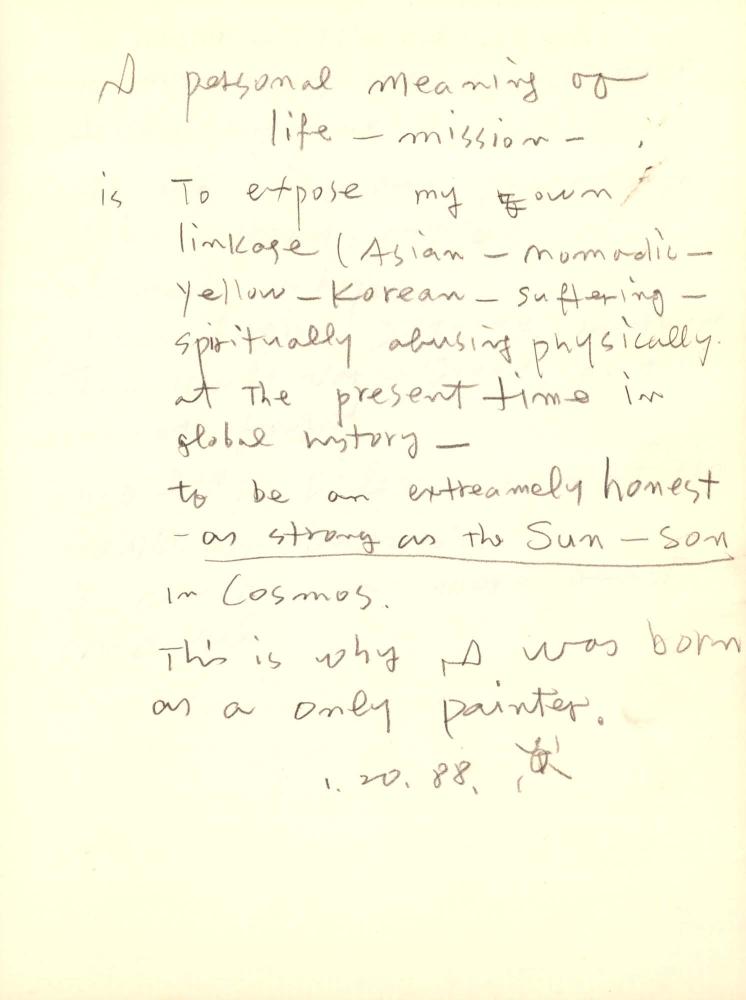 A personal meaning of
life – mission – .
is To expose my own
linkage ( Asian – nomadic –
Yellow – Korean – suffering –
spiritually abusing physically.
at The present time in
global history –
to be an extreamely honest
- as strong as the Sun – son
in Cosmos.
This is why I was born
as a only painter.
1. 20. 88.